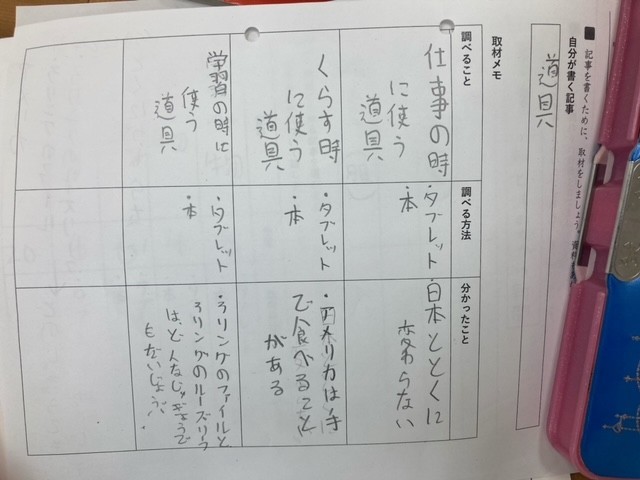 記事を書くために、取材をしましょう。
自分が書く記事
道具
取材メモ
調べること
調べる方法
分かったこと
仕事の時
に使う
道具
・タブレット
・本
・日本ととくに
変わらない
くらす時
に使う
道具
・タブレット
・本
・アメリカは手
で食べること
がある
学習の時に
使う
道具
・タブレット
・本
・3リングのファイルと
3リングのルーズリーフ
はどんなじゅぎょうで
もだいじょうぶ。